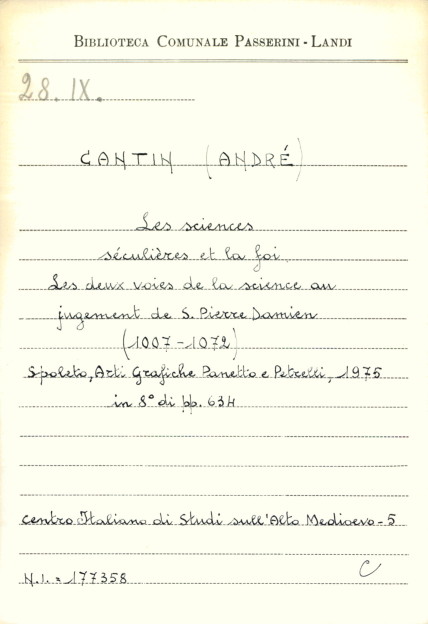 BIBLIOTECA COMUNALE PASSERINI - LANDI
28. IX.
CANTIN (ANDRÉ)
Les sciences
séculières et la foi
Les deux voies de la science au
jugement de S. Pierre Damien
(1007-1072)
Spoleto, Arti Grafiche Panetto e Petrelli, 1975
in 8° di pp. 634
Centro Italiano di Studi sull'Alto Medioevo - 5
N.I. = 177358
C